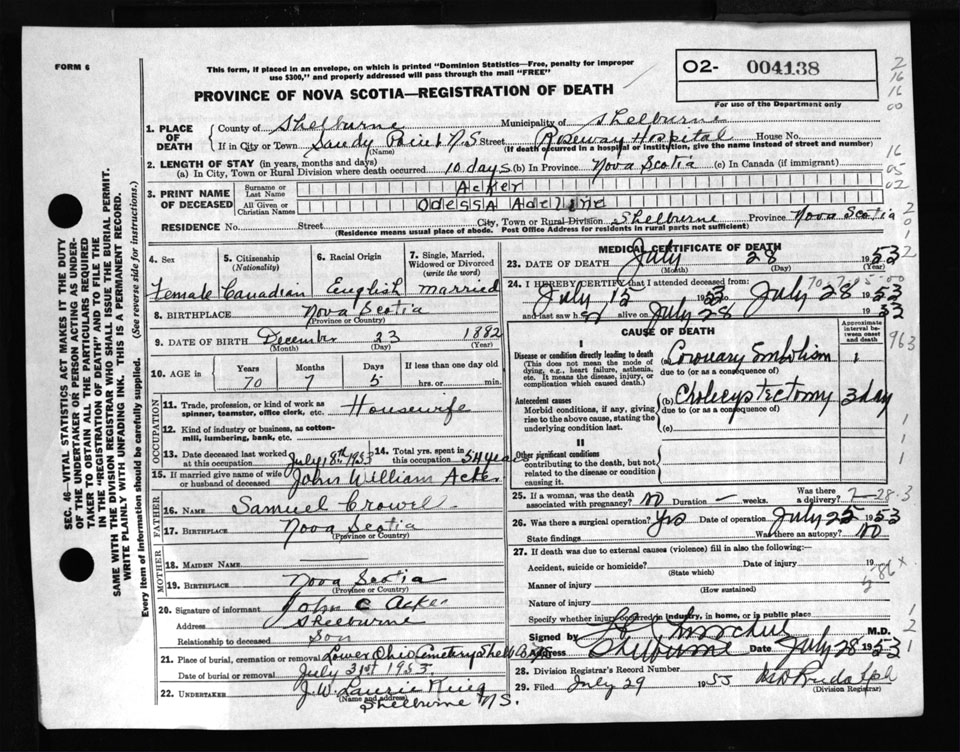 FORM 6
This form, if placed in an envelope, on which is printed "Dominion Statistics—Free, penalty for improper
use $300," and properly addressed will pass through the mail "FREE"
PROVINCE OF NOVA SCOTIA—REGISTRATION OF DEATH
O2- 004138
For use of the Department only
1. PLACE OF DEATH
County of Shelburne Municipality of Shelburne
If in City or Town Sandy Point N.S Street Roseway Hospital House No.
(Name) (If death occurred in a hospital or institution, give the name instead of street and number)
2. LENGTH OF STAY (in years, months and days)
(a) In City, Town or Rural Division where death occurred 10 days (b) In Province Nova Scotia (c) In Canada (if immigrant)
3. PRINT NAME OF DECEASED
Surname or Last Name Acker
All Given or Christian Names Odessa Adeline
RESIDENCE No. Street City, Town or Rural Division Shelburne Province Nova Scotia
(Residence means usual place of abode. Post Office Address for residents in rural parts not sufficient)
4. Sex
Female
5. Citizenship (Nationality)
Canadian
6. Racial Origin
English
7. Single, Married, Widowed or Divorced (write the word)
married
8. BIRTHPLACE Nova Scotia
(Province or Country)
9. DATE OF BIRTH December 23 1882
(Month) (Day) (Year)
10. AGE in Years Months Days If less than one day old
70 7 5 hrs. or min.
OCCUPATION
11. Trade, profession, or kind of work as spinner, teamster, office clerk, etc. Housewife
12. Kind of industry or business, as cotton-mill, lumbering, bank, etc.
13. Date deceased last worked at this occupation July 18th 1953
14. Total yrs. spent in this occupation 54 years
15. If married give name of wife or husband of deceased John William Acker
FATHER
16. NAME Samuel Crowel
17. BIRTHPLACE Nova Scotia
(Province or Country)
MOTHER
18. MAIDEN NAME
19. BIRTHPLACE Nova Scotia
(Province or Country)
20. Signature of informant John C Acker
Address Shelburne
Relationship to deceased Son
21. Place of burial, cremation or removal Lower Ohio Cemetery Shelb
Date of burial or removal July 31st 1953.
22. UNDERTAKER J. W. Laurie King
(Name and address)
Shelburne N.S.
MEDICAL CERTIFICATE OF DEATH
23. DATE OF DEATH July 28 1953
(Month) (Day) (Year)
24. I HEREBY CERTIFY that I attended deceased from:
July 15 1953 to July 28 1953
and last saw h alive on July 28 1953
CAUSE OF DEATH
Approximate interval between onset and death
I
Disease or condition directly leading to death
(This does not mean the mode of dying, e.g., heart failure, asthenia, etc. It means the disease, injury, or complication which caused death.)
Coronary Embolism 1
due to (or as a consequence of)
Antecedent causes
Morbid conditions, if any, giving rise to the above cause, stating the underlying condition last.
(b) Cholecystectomy 3 day
due to (or as a consequence of)
(c)
II
Other significant conditions
contributing to the death, but not related to the disease or condition causing it.
25. If a woman, was the death associated with pregnancy? NO Duration — weeks. Was there a delivery?
26. Was there a surgical operation? Yes Date of operation July 25 1953
State findings Was there an autopsy? NO
27. If death was due to external causes (violence) fill in also the following:—
Accident, suicide or homicide? Date of injury 19
(State which)
Manner of injury
(How sustained)
Nature of injury
Specify whether injury occurred in industry, in home, or in public place
Signed by M.D.
Address Shelburne Date July 28 1953
28. Division Registrar's Record Number
29. Filed July 29 1953 Rudolph
(Division Registrar)
SEC. 46—VITAL STATISTICS ACT MAKES IT THE DUTY
OF THE UNDERTAKER OR PERSON ACTING AS UNDER-
TAKER TO OBTAIN ALL THE PARTICULARS REQUIRED
IN THE "REGISTRATION OF DEATH" AND TO FILE THE
SAME WITH THE DIVISION REGISTRAR WHO SHALL ISSUE THE BURIAL PERMIT.
WRITE PLAINLY WITH UNFADING INK. THIS IS A PERMANENT RECORD.
Every item of Information should be carefully supplied. (See reverse side for instructions.)